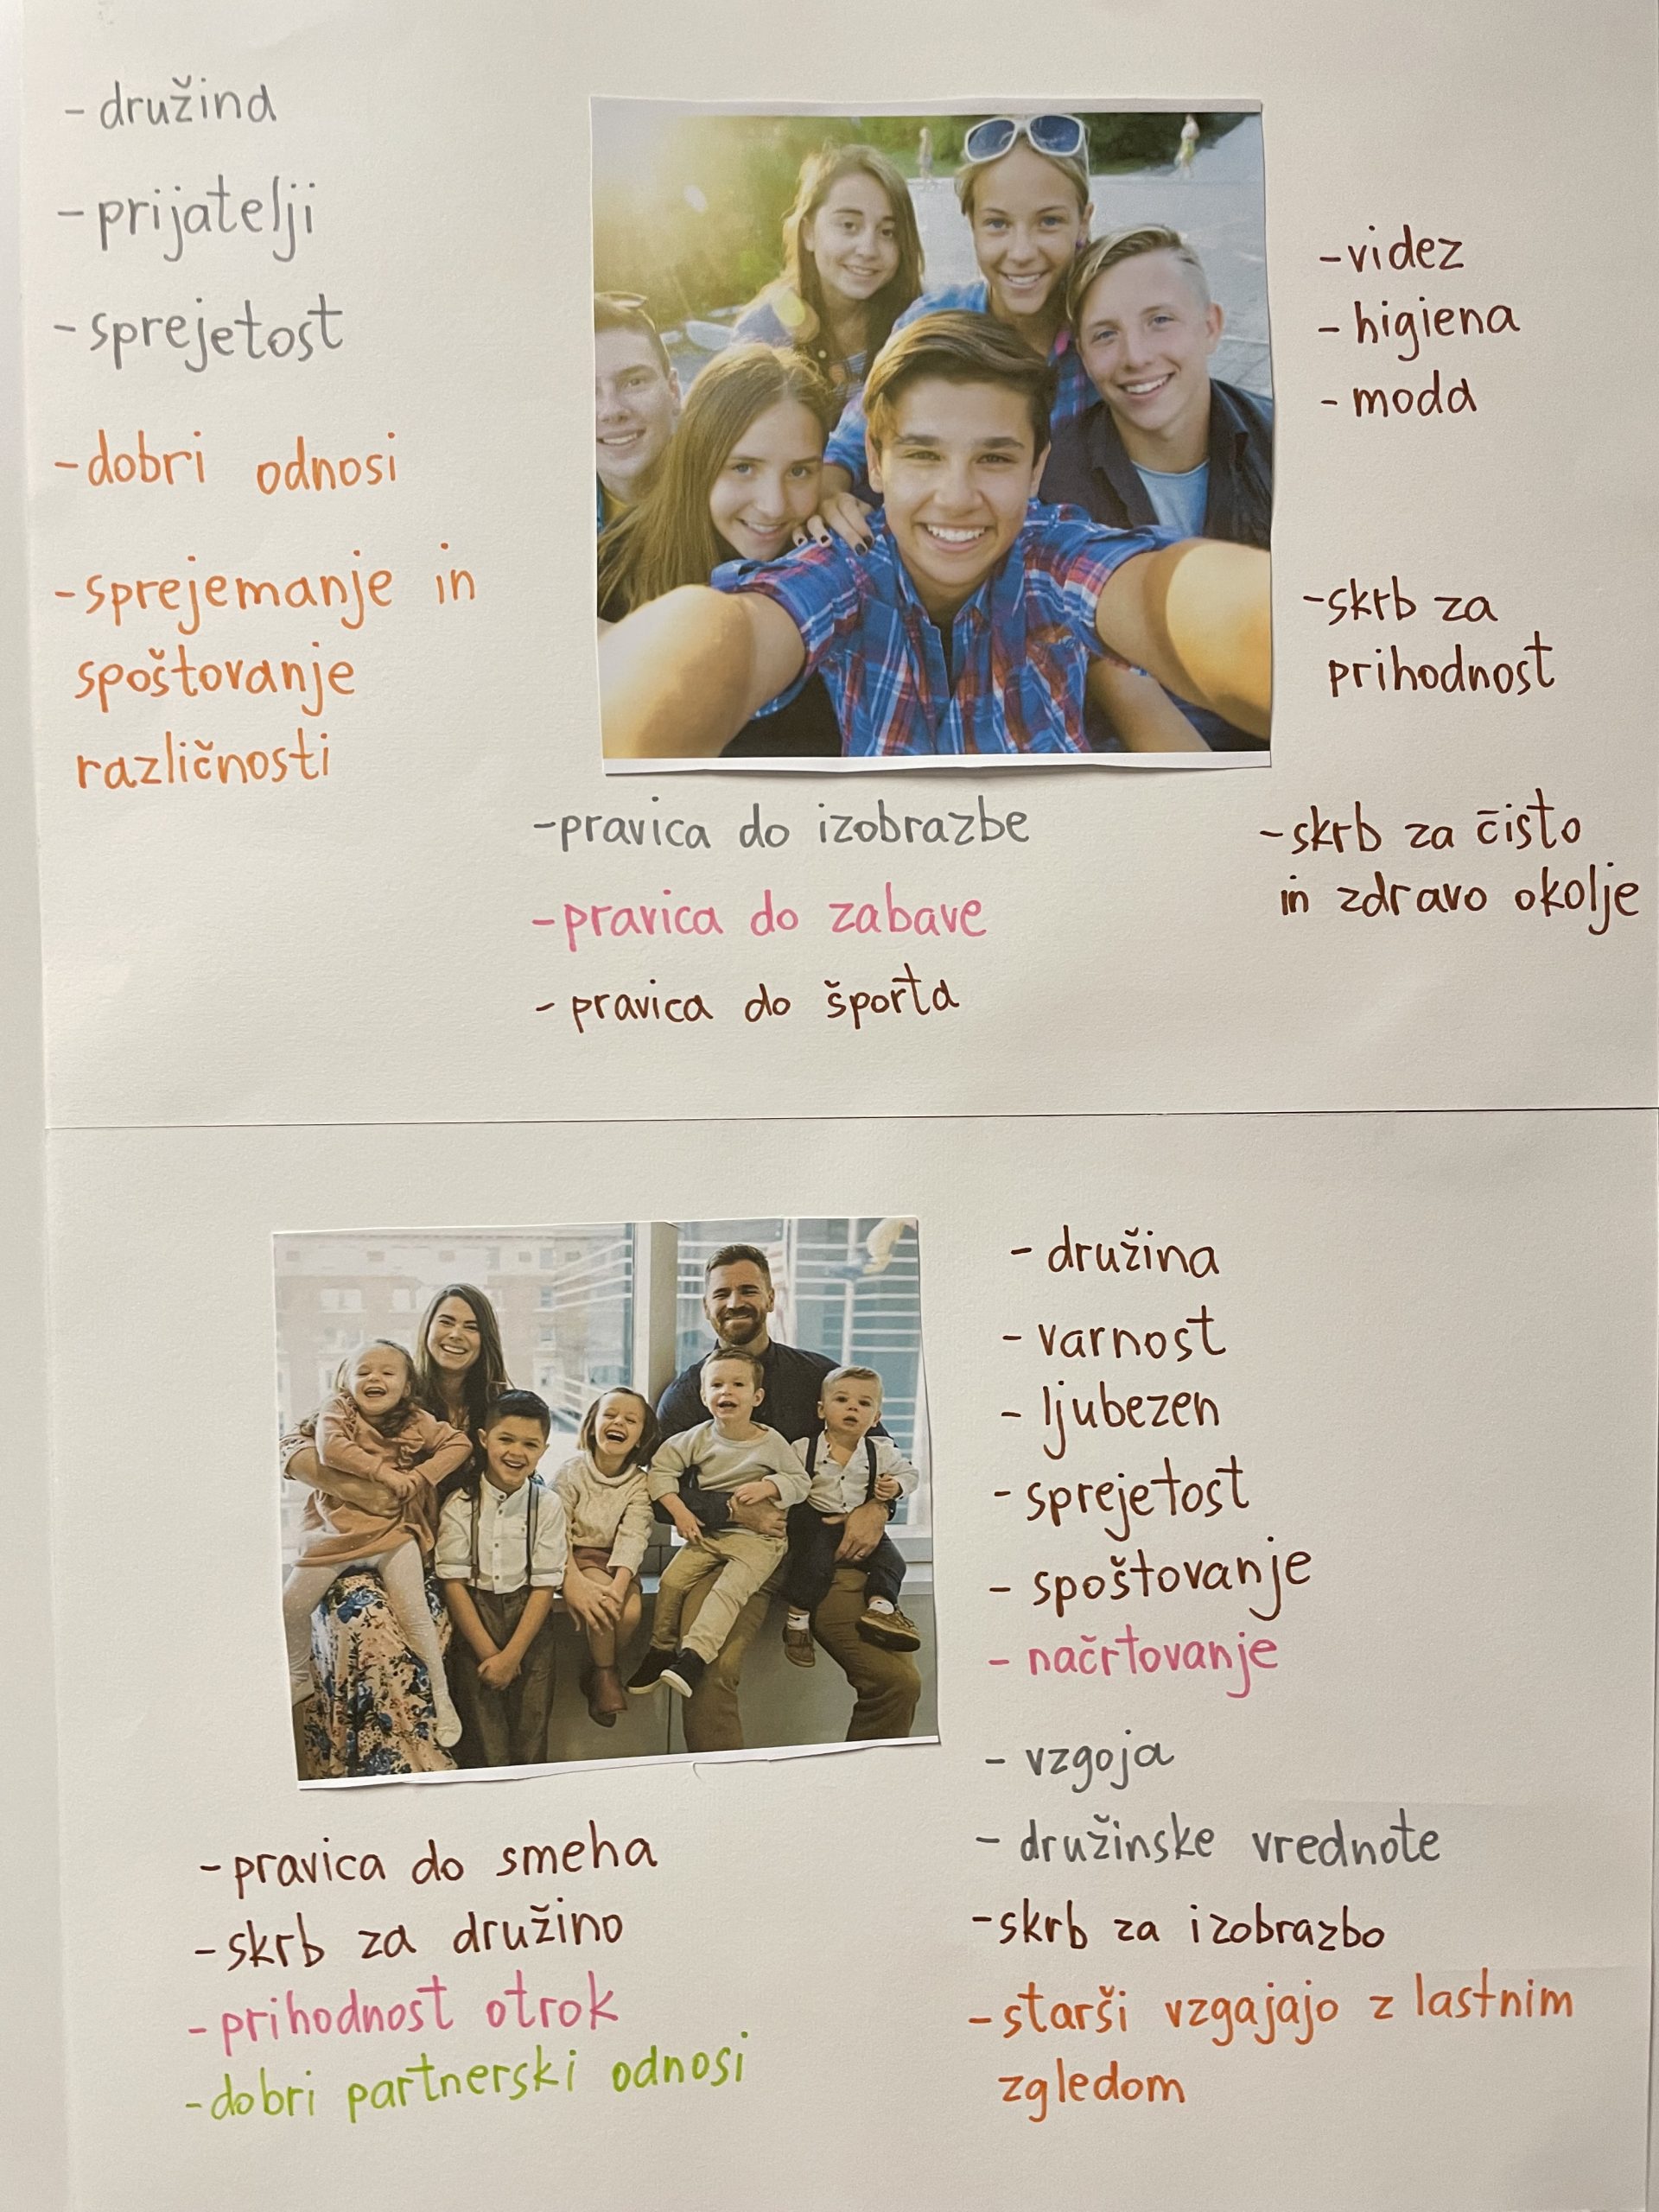 - družina
- prijatelji
- sprejetost
- dobri odnosi
- sprejemanje in
spoštovanje
različnosti
- videz
- higiena
- moda
- skrb za
prihodnost
- skrb za čisto
in zdravo okolje
- pravica do izobrazbe
- pravica do zabave
- pravica do športa
- družina
- varnost
- ljubezen
- sprejetost
- spoštovanje
- načrtovanje
- vzgoja
- družinske vrednote
- skrb za izobrazbo
- starši vzgajajo z lastnim
zgledom
- pravica do smeha
- skrb za družino
- prihodnost otrok
- dobri partnerski odnosi